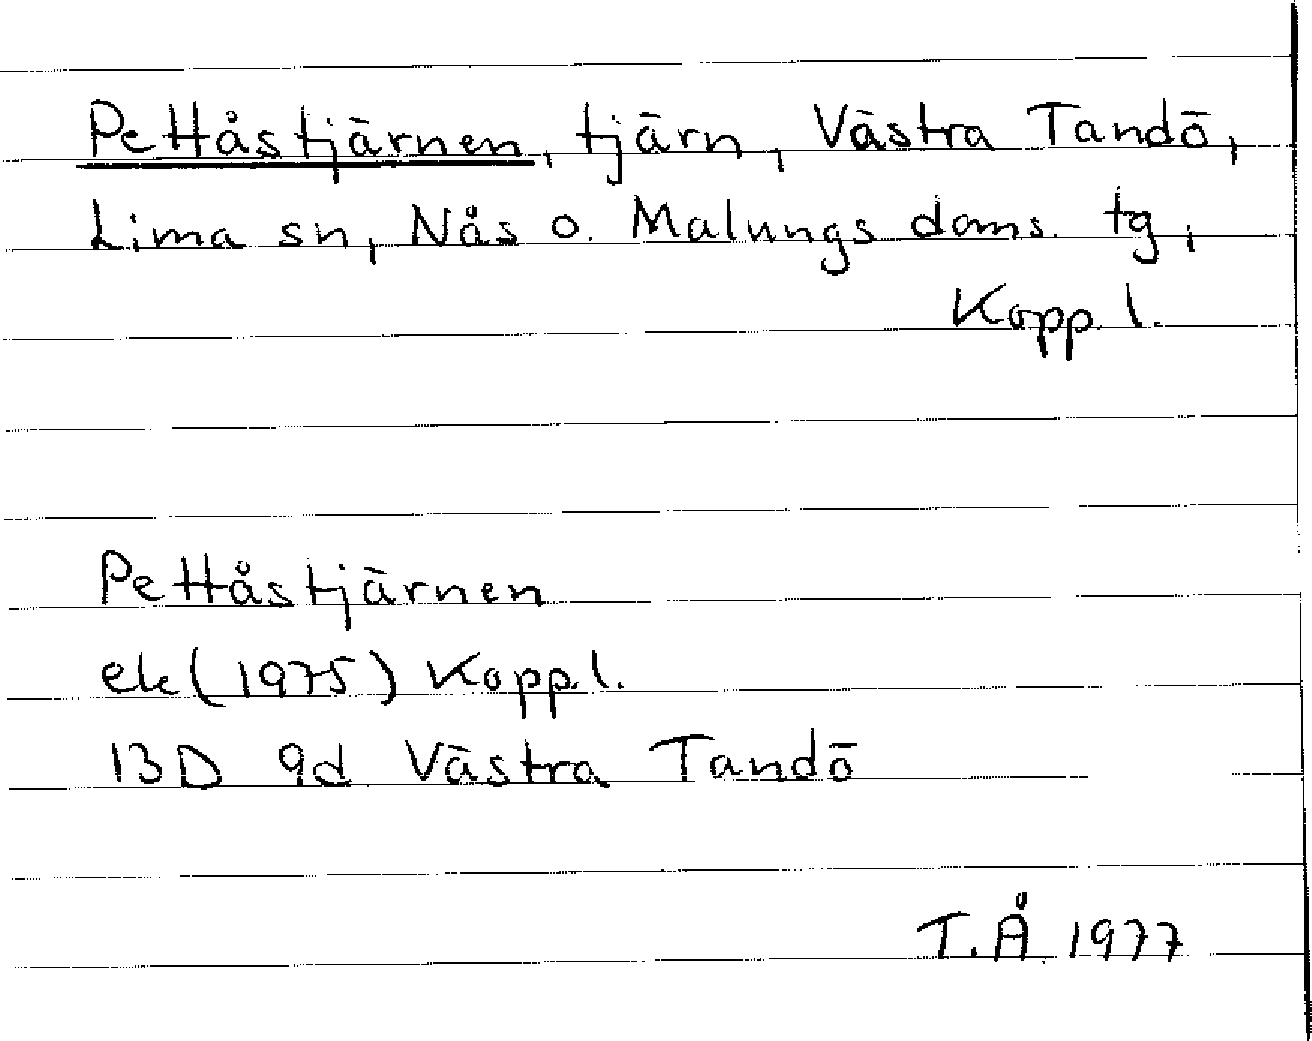 Pettåstjärnen, tjärn, Västra Tandö,
Lima sn, Nås o. Malungs doms. tg,
Kopp. l.
Pettåstjärnen
ek (1975) Kopp. l.
13D 9d Västra Tandö
T.Å. 1977